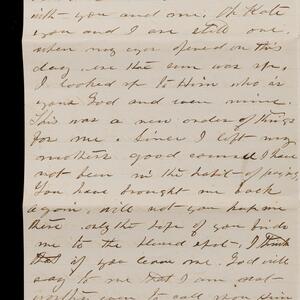 with you and me. Oh Kate
you and I are still one.
when my eyes opened on this
day, ere the sun was up,
I looked up to Him who is
your God and even mine.
This was a new order of things
for me. Since I left my
mothers good counsel I have
not been in the habit of paying
You have brought me back
again, will not you keep me
there. only the hope of you binds
me to the blessed spot. I think
that if you leave me. God will
say to me that I am not
worthy even to call upon Him